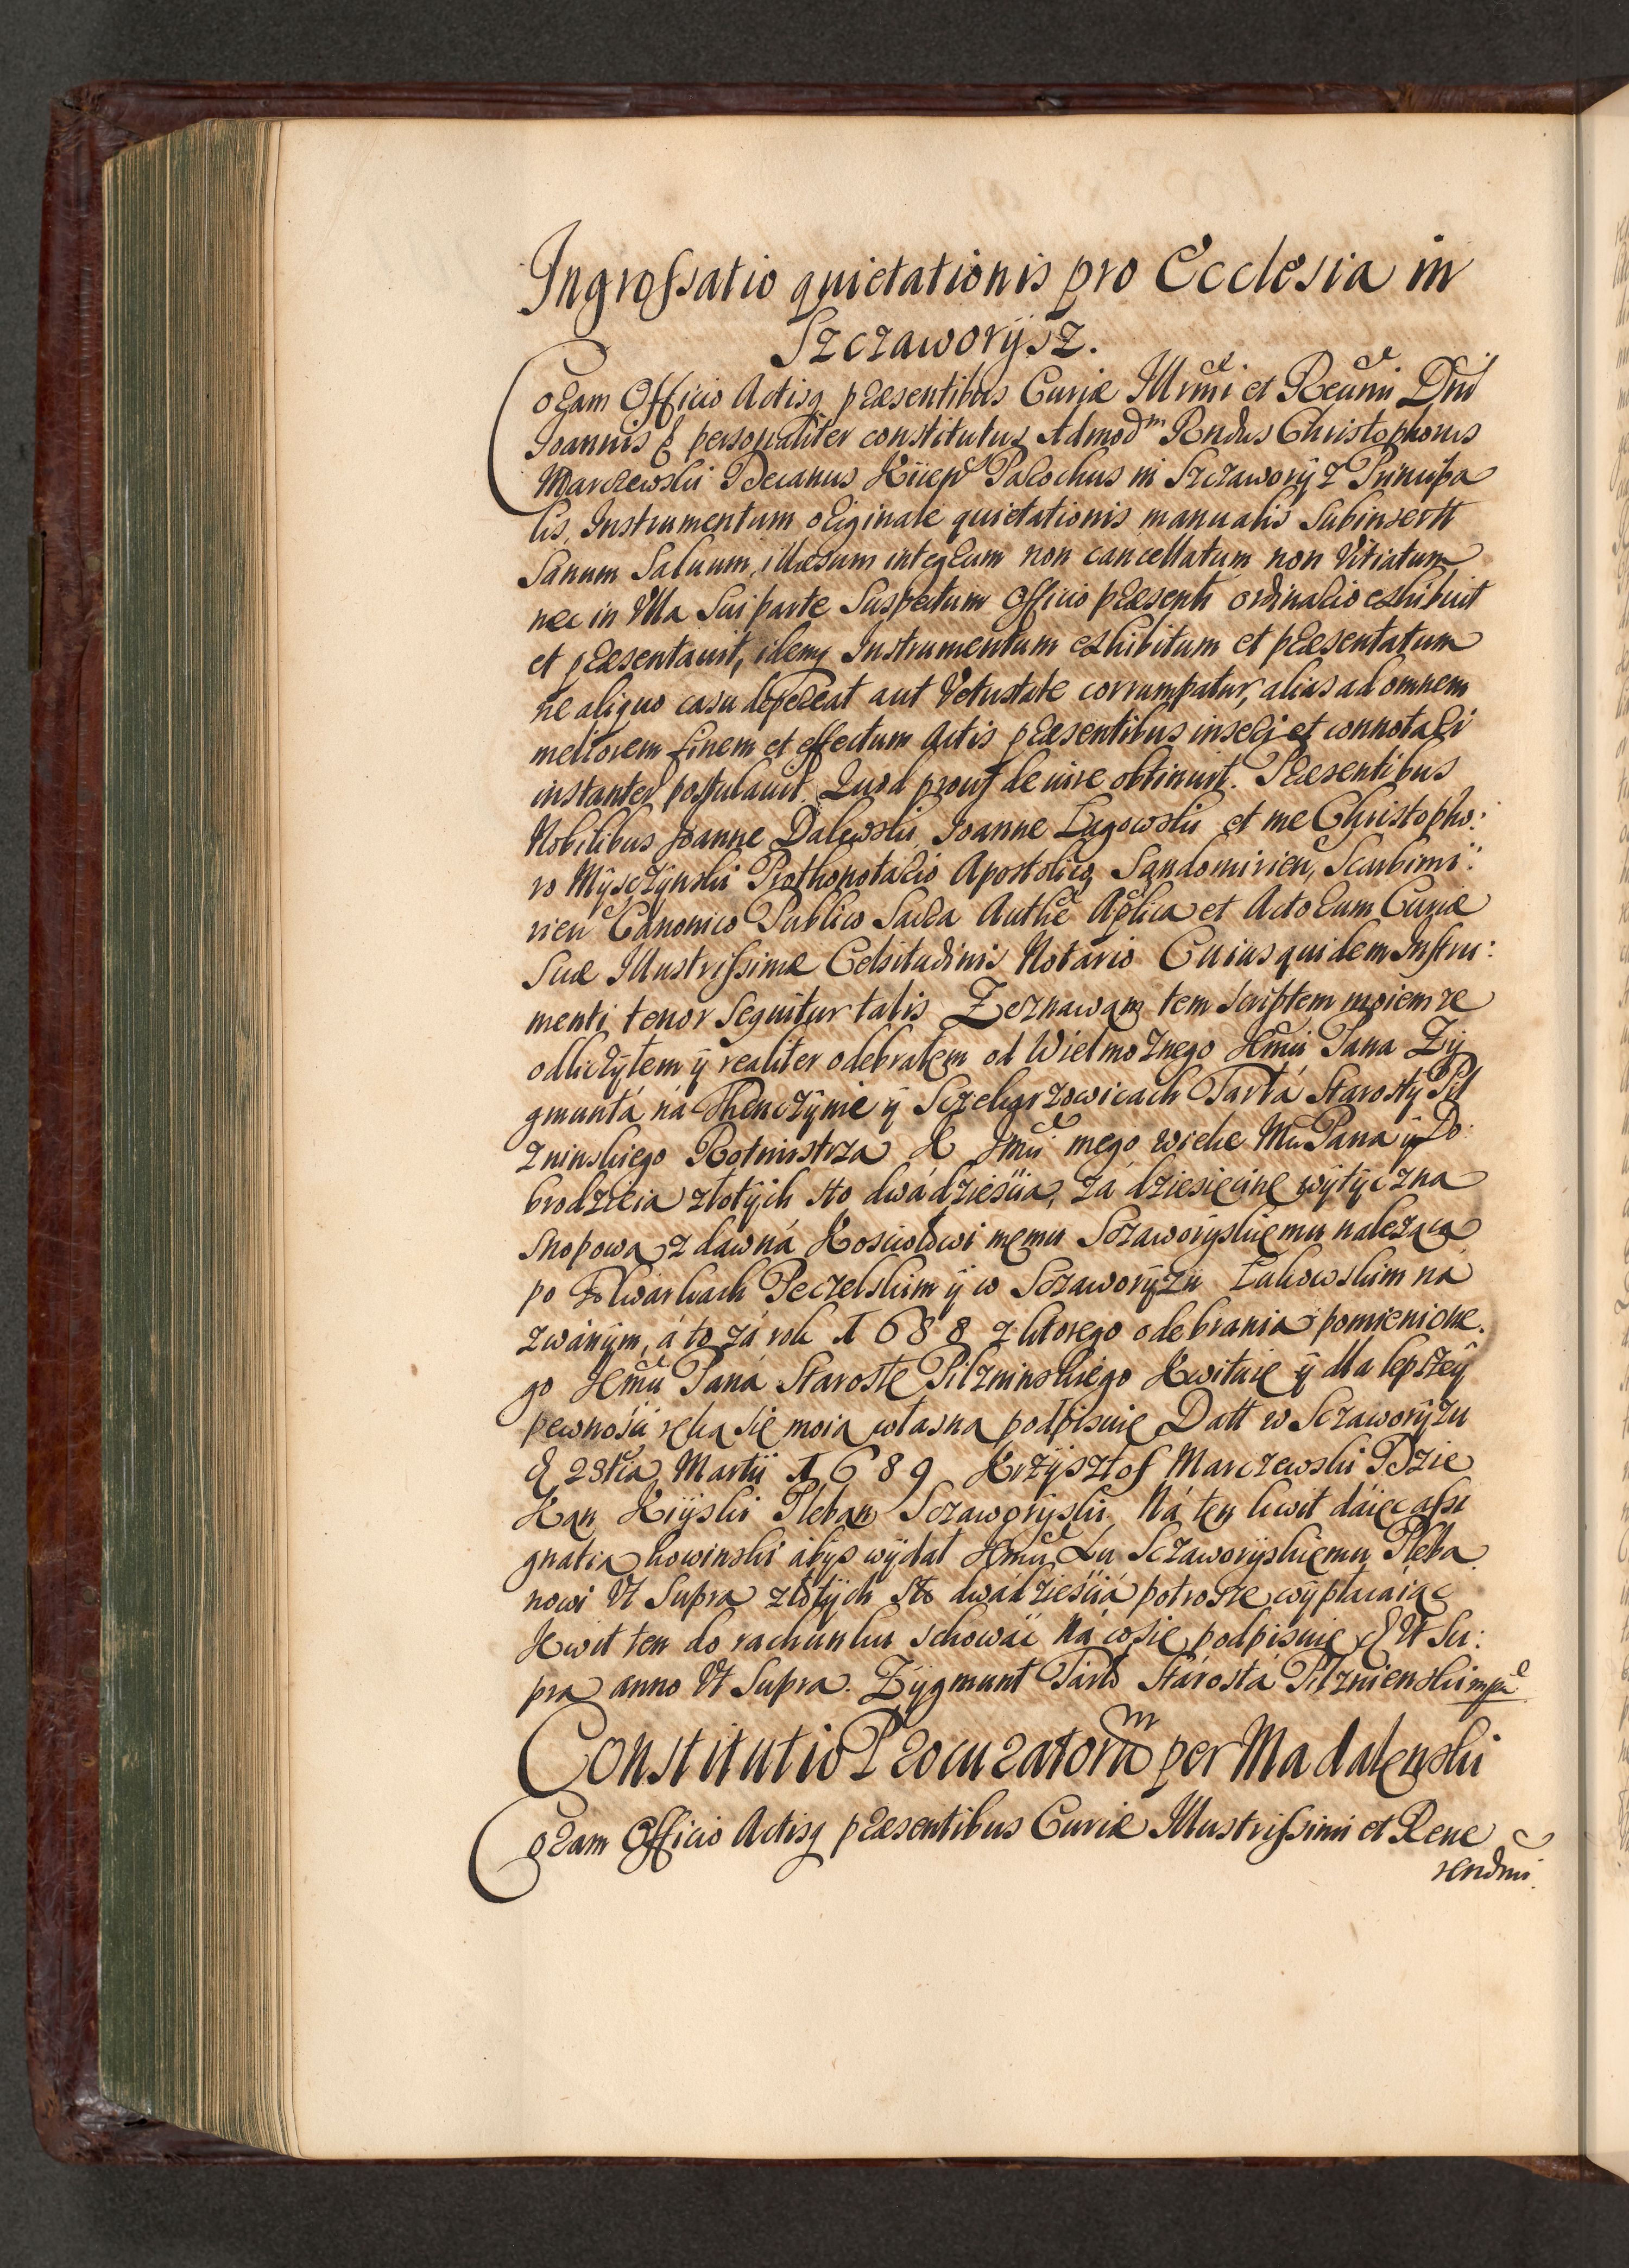 Ingrossatio quietationis pro Ecclesia in
Szczaworÿsz.
Coram Officio Actisq praesentibus Curiae Illrmi et Reurmi Dni
Joannis & personaliter constitutus Admodm Rndus Christophorus
Marczewski Decanus Kiien Parochus in Szczaworÿz Principa
lis, Instrumentum originale quietationis manualis Subinsertt
Sanum Saluum, illaesum integrum non cancellatum non Vitiatum
nec in Vlla Sui parte Suspectum Officio praesenti ordinario exhibuit
et praesentauit, idemq Instrumentum exhibitum et praesentatum
ne aliquo casu depereat aut Vetustate corrumpatur, alias ad omnem
meliorem finem et effectum Actis praesentibus inseri et connotari
instanter postulauit. Quod prout de iure obtinuit. Praesentibus
Nobilibus Joanne Dalewski, Joanne Lugowski et me Christopho:
ro Mÿsczÿnski Prothonotario Apostolico, Sandomirien, Scarbimi:
rien Canonico Publico Sacra Authe Aplica et Actorum Curiae
Suae Illustrissimae Celsitudinis Notario Cuius quidem Instru:
menti tenor Sequitur talis Zeznawam tem Scriptem moiem ze
odliczÿłem ÿ realiter odebrałem od Wielmoznego Jemci Pana Zÿ
gmuntá ná Thenczÿnie ÿ Sczekarzowicach Tarłá Starostÿ Pil
zninskiego Rotmistrza K Jmci mego wielce Mci Pana ÿ Do:
brodzieia złotÿch sto dwádzieściá, zá dziesięcinę wÿtÿczna
Snopowa z dawná Kosciołowi memu Sczaworÿskiemu nalezaca
po Folwarkach Peczelskim ÿ w Sczaworÿzu Lakowskim ná
zwánÿm, á to zá rok 1688 z ktorego odebrania pomienione.
go Jemci Paná Staroste Pilzninskiego Kwituie ÿ dla lepszeÿ
pewnosci ręka się moia własna podpisuię Datt w Sczaworÿzu
d 28tia Martii 1689 Krzÿsztof Marczewski Dzie
Kan Kiÿski Pleban Sczaworÿski. Ná ten kwit dáiec assi
gnatia kowinski abÿs wÿdał Jemci Xu Sczaworÿskiemu Pleba
nowi Vt Supra złotÿch sto dwádzieściá potrosze wÿpłacaiąc
Kwit ten do rachunku schowáć ná co się podpisuię d Vt Su:
pra anno Vt Supra. Zÿgmunt Tarło Stárostá Pilznienski mpr
Constitutio Procuratorum per Madalenski
Coram Officio Actisq praesentibus Curiae Illustrissimi et Reue
rendmi